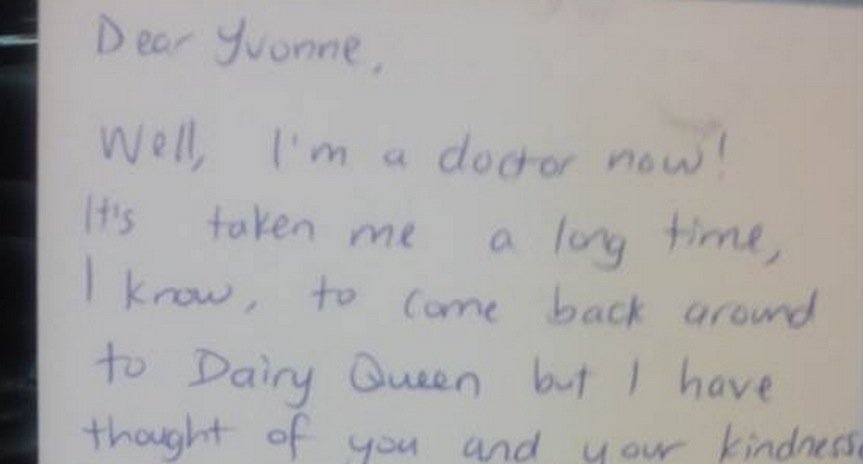 Dear Yvonne,
Well, I'm a doctor now!
It's taken me a long time,
I know, to come back around
to Dairy Queen but I have
thought of you and your kindness